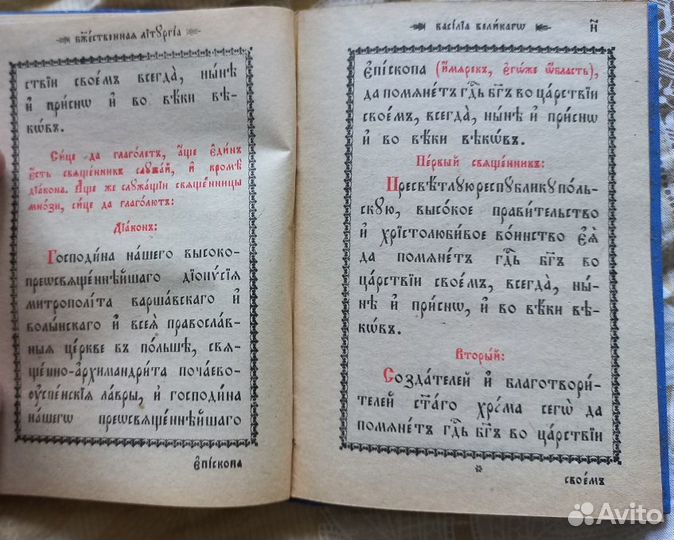 бж҃ественная літꙋргі́а
ствїи свое́мъ всегда̀, ны́нѣ
и҆ при́снѡ и҆ во вѣ́ки вѣ-
кѡ́въ.
Си́це да глаго́летъ, а҆́ще є҆ди́нъ
є҆́сть свѧще́нник слꙋжа́й, и҆ кромѣ̀
дїа́кона. А҆́ще же слꙋжа́щїи свѧще́нницы
мно́зи, си́це да глаго́лютъ:
Дїа́конъ:
Господи́на на́шего высоко-
преѡсвѧще́ннѣйшаго дїонѵ́сїа
митрополі́та варша́вскаго и҆
волы́нскаго и҆ всеѧ̀ правосла́в-
ныѧ це́ркве въ по́льшѣ, свѧ-
ще́нно-а҆рхимандри́та поча́ево-
ᲂу҆спе́нскїѧ ла́вры, и҆ господи́на
на́шегѡ преѡсвѧще́ннѣйшаго
є҆пі́скопа
васі́лїа вели́кагѡ
и҃
Є҆пі́скопа (и҆мѧре́къ, є҆гѡ́же ѻ҆́бласть),
да помѧне́тъ гдⷭ҇ь бг҃ъ во ца́рствїи
свое́мъ, всегда̀, ны́нѣ и҆ при́снѡ
и҆ во вѣ́ки вѣкѡ́въ.
Пе́рвый свѧще́нникъ:
Пресвѣ́тлꙋю респꙋ́бликꙋ по́ль-
скꙋю, высо́кое прави́тельство
и҆ хрїстолюби́вое во́инство є҆ѧ̀
да помѧне́тъ гдⷭ҇ь бг҃ъ во
ца́рствїи свое́мъ, всегда̀, ны́-
нѣ и҆ при́снѡ, и҆ во вѣ́ки вѣ-
кѡ́въ.
Вторы́й:
Созда́телей и҆ благотвори́-
телей ст҃а́гѡ хра́ма сегѡ̀ да
помѧне́тъ гдⷭ҇ь бг҃ъ во ца́рствїи
свое́мъ
Avito